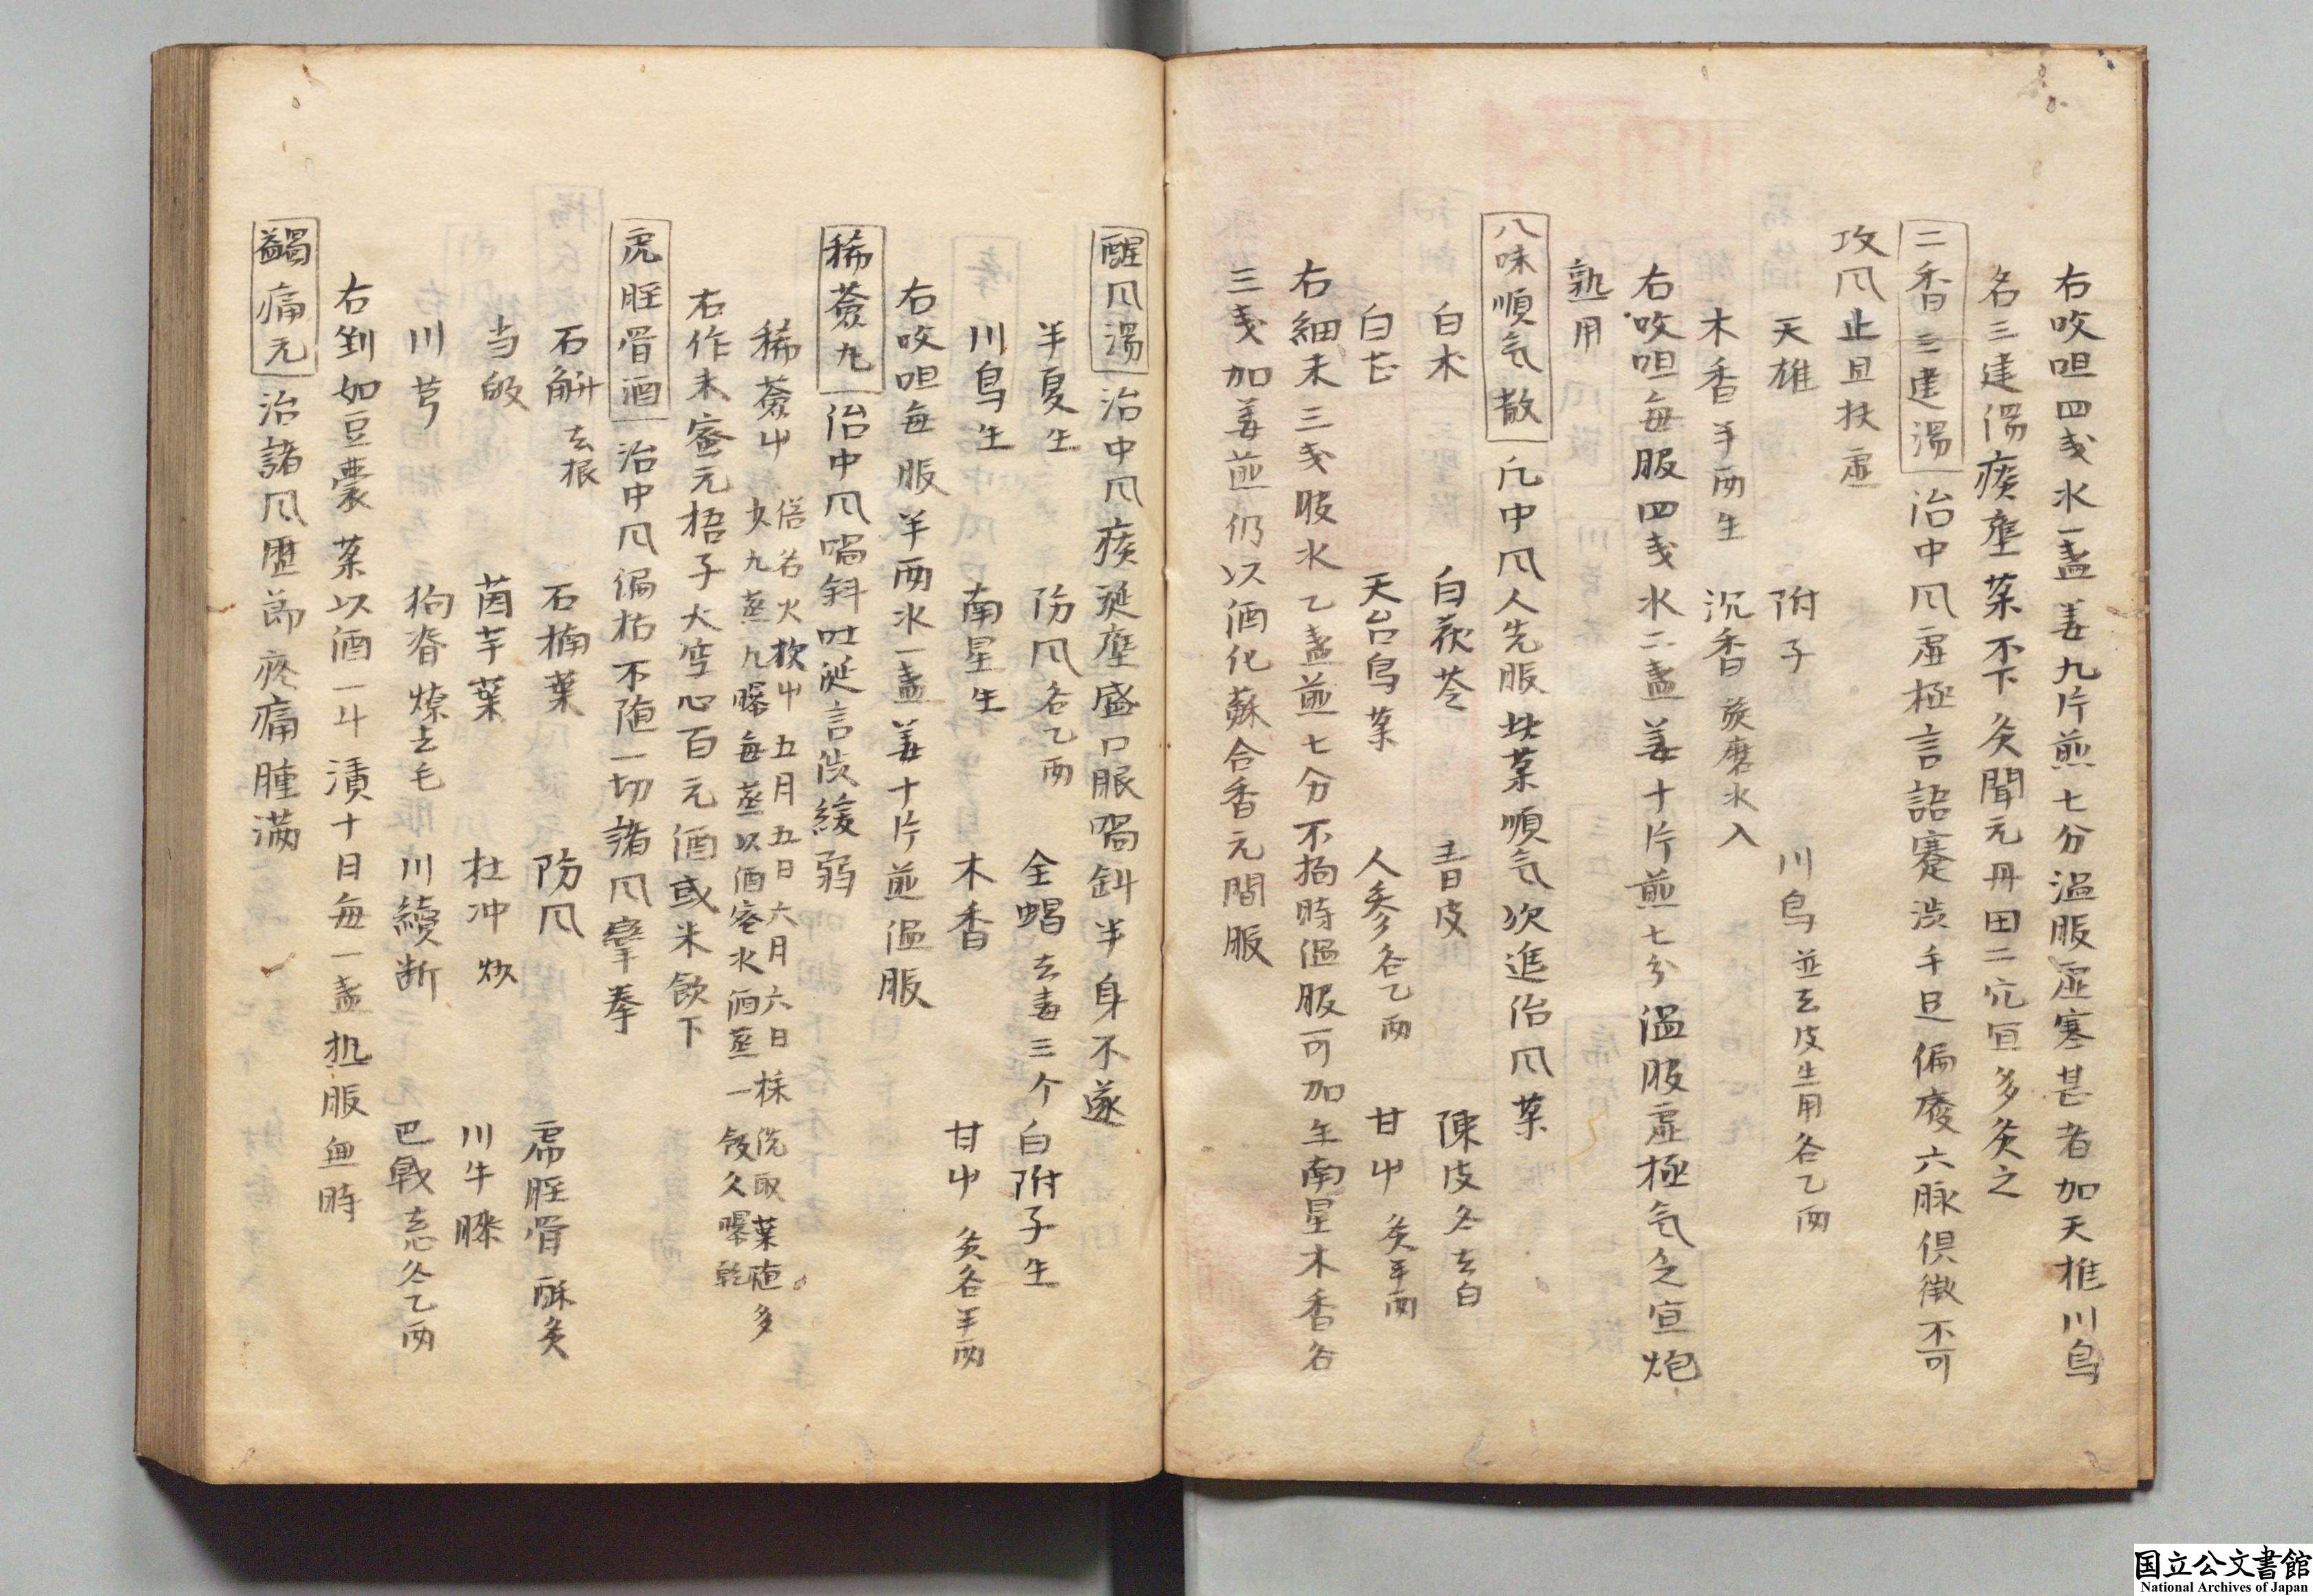 右㕮咀四戔水一盞姜九片煎七分温服虚寒甚者加天雄川烏
名三建湯痰壅薬不下灸関元丹田二穴宜多灸之
二香三建湯 治中风虚極言語蹇渋手足偏廃六脉倶微不可
攻风止且扶虚
天雄 附子 川烏並去皮生用各乙両
木香半両生 沉香旋磨水入
右㕮咀毎服四戔水二盞姜十片煎七分温服虚極气乏宜炮
熟用
八味順气散 凡中风人先服此薬順气次進治风薬
白术 白茯苓 青皮 陳皮各去白
白芷 天台烏薬 人参各乙両 甘屮炙半両
右細末三戔服水乙盞煎七分不拘時温服可加生南星木香各
三戔加姜煎仍以酒化蘇合香元間服
醒风湯 治中风痰涎壅盛口眼喎斜半身不遂
半夏生 防风各乙両 全蝎去毒三个 白附子生
川烏生 南星生 木香 甘屮炙各半両
右㕮咀毎服半両水一盞姜十片煎温服
稀薟丸 治中风喎斜吐涎言渋緩弱
稀薟屮 俗名火杴屮五月五日六月六日採洗取葉随多
少九蒸九曝毎蒸以酒密水洒蒸一飯久曝乾
右作末蜜元梧子大空心百元酒或米飲下
虎脛骨酒 治中风偏枯不随一切諸风攣拳
石斛去根 石楠葉 防风 虎脛骨酥炙
当皈 茵芋葉 杜冲炒 川牛膝
川芎 狗脊燎去毛 川続断 巴戟去心各乙両
右剉如豆嚢薬以酒一斗漬十日毎一盞热服無時
蠲痛元 治諸风歴節疼痛腫満
国立公文書館
National Archives of Japan